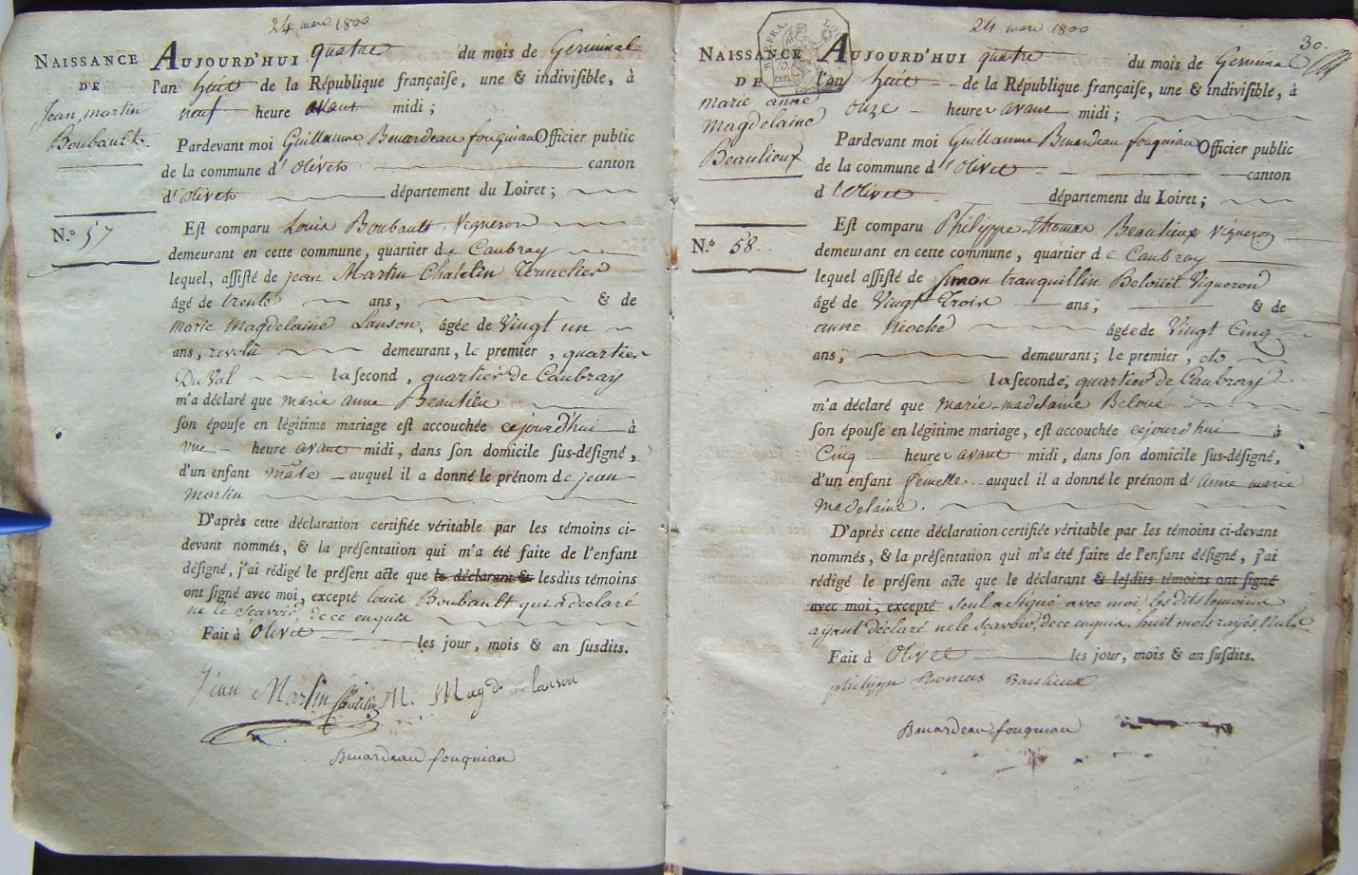 24 mars 1800
NAISSANCE
DE
Jean, martin
Boubault.
N.º 57
AUJOURD'HUI quatre du mois de Germinal
l'an huit de la République française, une & indivisible, à
neuf heure avant midi;
Pardevant moi Guillaume Benardeau fouquiau Officier public
de la commune d'Olivets canton
d'Olivets département du Loiret;
Est comparu Louis Boubault Vigneron
demeurant en cette commune, quartier de Caubray
lequel, assisté de jean Martin Chatelin Tonnelier
âgé de trente ans, & de
marie Magdelaine Lanson, âgée de Vingt un
ans, revolu demeurant, le premier, quartier
Du Val la second, quartier de Caubray
m'a déclaré que marie anne Beaulieu
son épouse en légitime mariage est accouchée cejourd'hui à
une heure avant midi, dans son domicile sus-désigné,
d'un enfant mâle auquel il a donné le prénom de jean
martin
D'après cette déclaration certifiée véritable par les témoins ci-
devant nommés, & la présentation qui m'a été faite de l'enfant
désigné, j'ai rédigé le présent acte que le déclarant & lesdits témoins
ont signé avec moi, excepté louis Boubault qui a déclaré
ne le sçavoir, de ce enquis
Fait à Olivet les jour, mois & an susdits.
Jean Martin Chatelin M. Magde lanson
Benardeau fouquiau
24 mars 1800
30.
NAISSANCE
DE
marie anne
Magdelaine
Beaulieux
N.º 58.
AUJOURD'HUI quatre du mois de Germinal
l'an huit de la République française, une & indivisible, à
onze heure avant midi;
Pardevant moi Guillaume Benardeau fouquiau Officier public
de la commune d'Olivet canton
d'Olivet département du Loiret;
Est comparu Philippe Thomas Beaulieux Vigneron
demeurant en cette commune, quartier de Caubray
lequel assisté de simon tranquillin Belouet Vigneron
âgé de Vingt Trois ans, & de
anne hioche âgée de Vingt Cinq
ans, demeurant; le premier, et
la seconde, quartier de Caubray
m'a déclaré que marie madelaine Beloue
son épouse en légitime mariage, est accouchée cejourd'hui à
Cinq heure avant midi, dans son domicile sus-désigné,
d'un enfant femelle auquel il a donné le prénom d'anne marie
madelaine.
D'après cette déclaration certifiée véritable par les témoins ci-devant
nommés, & la présentation qui m'a été faite de l'enfant désigné, j'ai
rédigé le présent acte que le déclarant & lesdits témoins ont signé
avec moi, excepté seul a signé avec moi, les dits temoins
ayant déclaré ne le sçavoir, de ce enquis. huit mots rayés nuls
Fait à Olivet les jour, mois & an susdits.
philippe Thomas Baulieux
Benardeau fouquiau